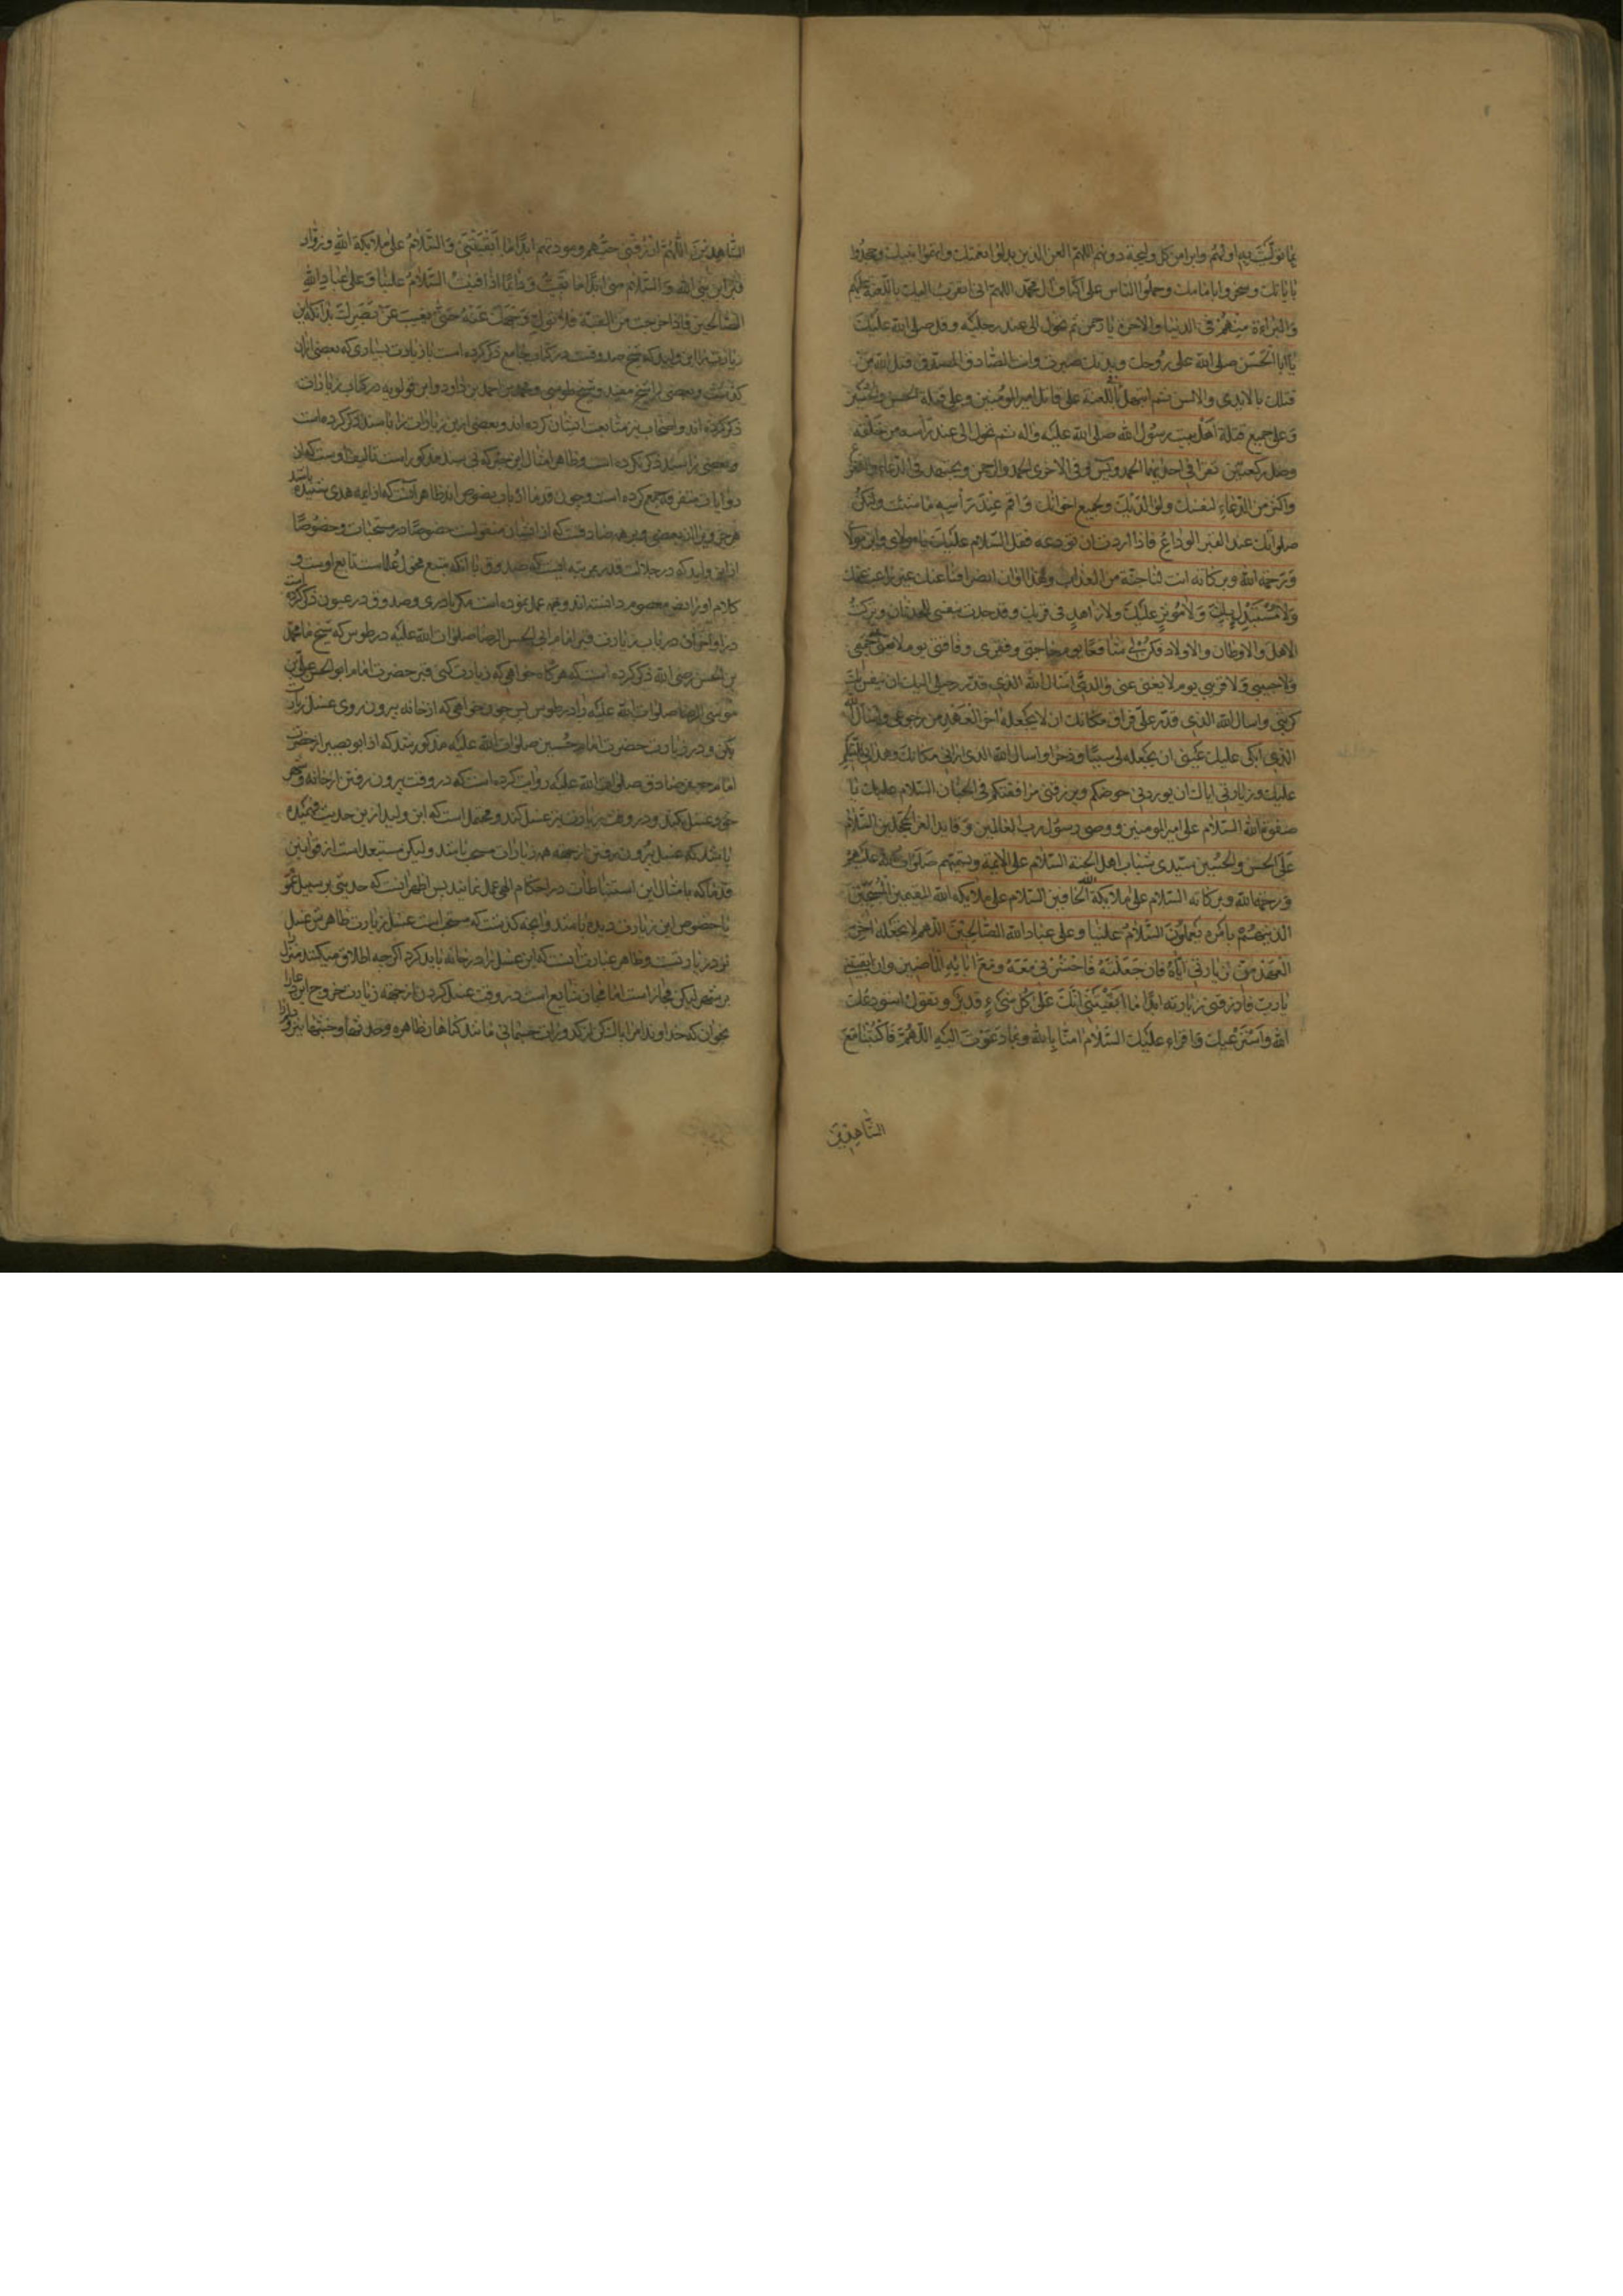 بما تولّيت به اولهم وابرأ من كل وليجة دونهم اللهم العن الذين بدلوا نعمتك واتهموا نبيك وجحدوا
باياتك وسخروا بامامك وحملوا الناس على اكتاف آل محمد اللهم انى اتقرب اليك باللعنة عليهم
والبراءة منهم فى الدنيا والاخرة يا رحمن ثم تحول الى عند رجليه وقل صلى الله عليك
يا ابا الحسن صلى الله على روحك وبدنك صبرت وانت الصادق المصدق قتل الله من
قتلك بالايدى والالسن ثم ابتهل باللعنة على قاتل امير المومنين وعلى قتلة الحسن والحسين
وعلى جميع قتلة اهل بيت رسول الله صلى الله عليه واله ثم تحول الى عند رأسه من خلفه
وصل ركعتين تقرا فى احديهما الحمد ويس وفى الاخرى الحمد والرحمن وتجتهد فى الدعاء والتضرع
واكثر من الدعاء لنفسك ولوالديك ولجميع اخوانك واقم عند رأسه ما شئت ولتكن
صلواتك عند القبر الوداع فاذا اردت ان تودعه فقل السلام عليك يا مولاى وابن مولاى
ورحمة الله وبركاته انت لنا جنة من العذاب وهذا اوان انصرافنا عنك غير راغب عنك
ولا مستبدل بك ولا موثر عليك ولا زاهد فى قربك وقد جدت بنفسى للحدثان وتركت
الاهل والاوطان والاولاد فكن لى شافعا يوم حاجتى وفقرى وفاقتى يوم لا يغنى عنى حميمى
ولا حبيبى ولا قريبى يوم لا يغنى عنى والدى اسال الله الذى قدر رحيلى اليك ان ينفس بك
كربتى واسال الله الذى قدر على فراق مكانك ان لا يجعله اخر العهد من رجوعى واسال الله
الذى ابكى عليك عينى ان يجعله لى سببا وذخرا واسال الله الذى ارانى مكانك وهدانى للتسليم
عليك وزيارتى اياك ان يوردنى حوضكم ويرزقنى مرافقتكم فى الجنان السلام عليك يا
صفوة الله السلام على امير المومنين ووصى رسول رب العالمين وقايد الغر المحجلين السلام
على الحسن والحسين سيدى شباب اهل الجنة السلام على الايمة وتسميهم صلوات الله عليهم
ورحمة الله وبركاته السلام على ملايكة الله الحافين السلام على ملايكة الله المقيمين المسبحين
الذين هم بامره يعملون السلام علينا وعلى عباد الله الصالحين اللهم لا تجعله اخر
العهد من زيارتى اياه فان جعلته فاحشرنى معه ومع ابايه الماضين وان ابقيتنى
يا رب فارزقنى زيارته ابدا ما ابقيتنى انك على كل شىء قدير وتقول استودعك
الله واسترعيك واقراء عليك السلام امنا بالله وبما دعوت اليه اللهم فاكتبنا مع
الشاهدين
الشاهدين اللهم ارزقنى حبهم ومودتهم ابدا ما ابقيتنى والسلام على ملايكة الله وزوار
قبر ابن نبى الله والسلام منى ابدا ما بقيت ودائما اذا فنيت السلام علينا وعلى عباد الله
الصالحين فاذا خرجت من القبة فلا تول وجهك عنه حتى يغيب عن بصرك بدانكه اين
زيارت را ابن وليد كه شيخ صدوقست در كتاب جامع ذكر كرده است با زيادت بسيارى كه بعضى ازان
كذشت وبعضى را شيخ مفيد وشيخ طوسى ومحمد بن احمد بن داود وابن قولويه در كتاب زيارات
ذكر كرده اند واصحاب نيز متابعت ايشان كرده اند وبعضى ازين زيارات را با سند ذكر كرده است
وبعضى را سند ذكر نكرده است وظاهر امثال اين خبر كه بى سند مذكور است تاليف اوست كه از
روايات متفرقه جمع كرده است وچون قدما ارباب نصوص اند ظاهر آنست كه از ايمه هدى شنيده باشند
در خصوص اين بعضى وبر همه صادقست كه از ايشان منقولست خصوصا در مستحبات وخصوصا
از ابن وليد كه در جلالت قدر بمرتبه ايست كه صدوق با آنكه متتبع فحول علماست تابع اوست و
كلام او را نص معصوم دانسته اند وبهمه عمل نموده است مكر نادرى وصدوق در عيون ذكر كرده است
در اواخر آن در باب زيارت قبر امام ابى الحسن الرضا صلوات الله عليه در طوس كه شيخ ما محمد
بن الحسن رضى الله ذكر كرده است كه هر كاه خواهى كه زيارت كنى قبر حضرت امام ابو الحسن على بن
موسى الرضا صلوات الله عليه را در طوس پس چون خواهى كه از خانه بيرون روى غسل زيارت
بكن ودر زيارت حضرت امام حسين صلوات الله عليه مذكور شد كه ابو بصير از حضرت
امام جعفر صادق صلوات الله عليه روايت كرده است كه در وقت بيرون رفتن از خانه وشهر
خود غسل بكند ودر وقت زيارت نيز غسل كند ومحتمل است كه ابن وليد ازين حديث فهميده
باشد كه غسل بيرون رفتن از جهه همه زيارات مستحب باشد وليكن مستبعد است از قوانين
قدما كه بامثال اين استنباطات در احكام الهى عمل نمايند پس اظهر اينست كه حديثى بر سبيل عموم
يا خصوص اين زيارت ديده باشند وآنچه كذشت كه مستحب است غسل زيارت ظاهرش غسل
نزد زيارتست وظاهر عبارت آنست كه اين غسل را در خانه بايد كرد اكرچه اطلاق ميكنند منزل را
بر شهر ليكن مجاز است اما مجاز شايع است در وقت غسل كردن از جهه زيارت خروج اين دعا را
بخوان كه خداوندا مرا پاك كن از كدورات جسمانى مانند كناهان ظاهره وحدثها وخبثها